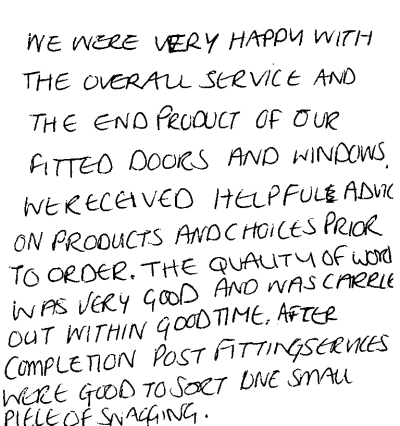 WE WERE VERY HAPPY WITH
THE OVERALL SERVICE AND
THE END PRODUCT OF OUR
FITTED DOORS AND WINDOWS.
WE RECEIVED HELPFUL ADVIC
ON PRODUCTS AND CHOICES PRIOR
TO ORDER. THE QUALITY OF WORK
WAS VERY GOOD AND WAS CARRIE
OUT WITHIN GOOD TIME. AFTER
COMPLETION POST FITTING SERVICES
WERE GOOD TO SORT ONE SMALL
PIECE OF SNAGGING.